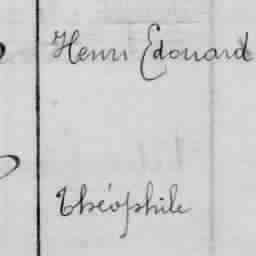 Henri Edouard
Théophile